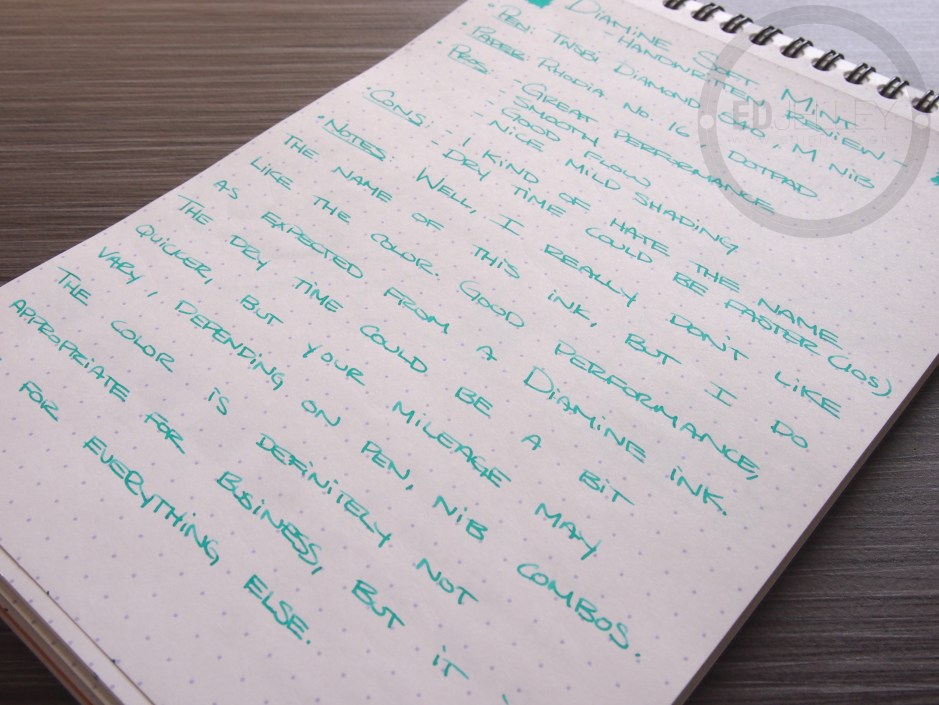 DIAMINE SOFT MINT
- HANDWRITTEN REVIEW -
• PEN: TWSBI DIAMOND 580, M. NIB
• PAPER: RHODIA NO. 16 DOTPAD
• PROS: - GREAT PERFORMANCE
- SMOOTH
- GOOD FLOW
- NICE MILD SHADING
• CONS: - I KIND OF HATE THE NAME
- DRY TIME COULD BE FASTER (10S)
• NOTES: WELL, I REALLY DON'T LIKE
THE NAME OF THIS INK, BUT I DO
LIKE THE COLOR. GOOD PERFORMANCE,
AS EXPECTED FROM A DIAMINE INK.
THE DRY TIME COULD BE A BIT
QUICKER, BUT YOUR MILEAGE MAY
VARY, DEPENDING ON PEN, NIB COMBOS.
THE COLOR IS DEFINITELY NOT
APPROPRIATE FOR BUSINESS, BUT IT
FOR EVERYTHING ELSE.
ED JELLEY